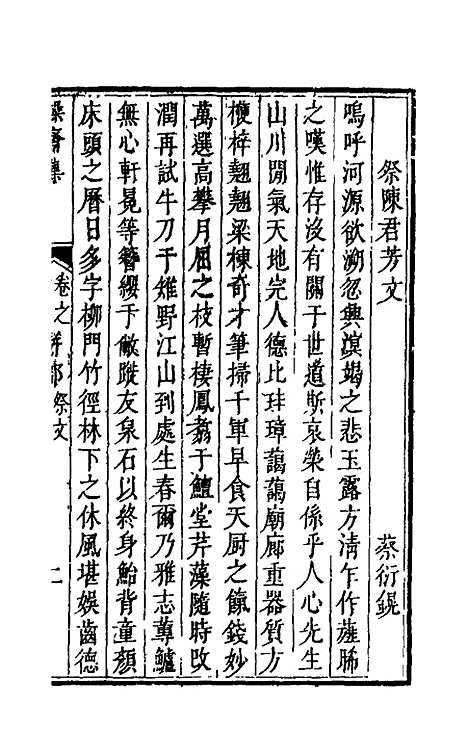 祭陳君芳文　蔡衍鎤
嗚呼河源欲溯忽興溟竭之悲玉露方清乍作薤晞
之嘆惟存沒有關于世道斯哀榮自係乎人心先生
山川閒氣天地完人德比珪璋藹藹廟廊重器質方
楩梓翹翹梁棟奇才筆掃千軍早食天厨之餼錢妙
萬選高攀月屈之枝暫棲鳳翥于鱣堂芹藻隨時改
潤再試牛刀于雉野江山到處生春爾乃雅志蓴鱸
無心軒冕等簪纓于敝蹝友泉石以終身鮐背童顏
床頭之曆日多字柳門竹徑林下之休風堪娛齒德
操齋集　卷之　駢部祭文　二